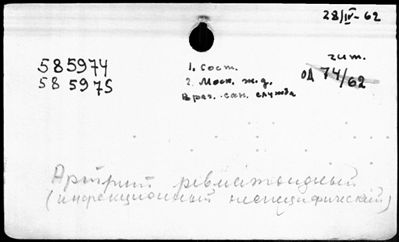 28/IV-62
585974
585975
1. Сост.
2. Моск. ж.д.
Врач. сан. служба
чит.
ОД 74/62
Артрит ревматоидный
(инфекционный неспецифический)